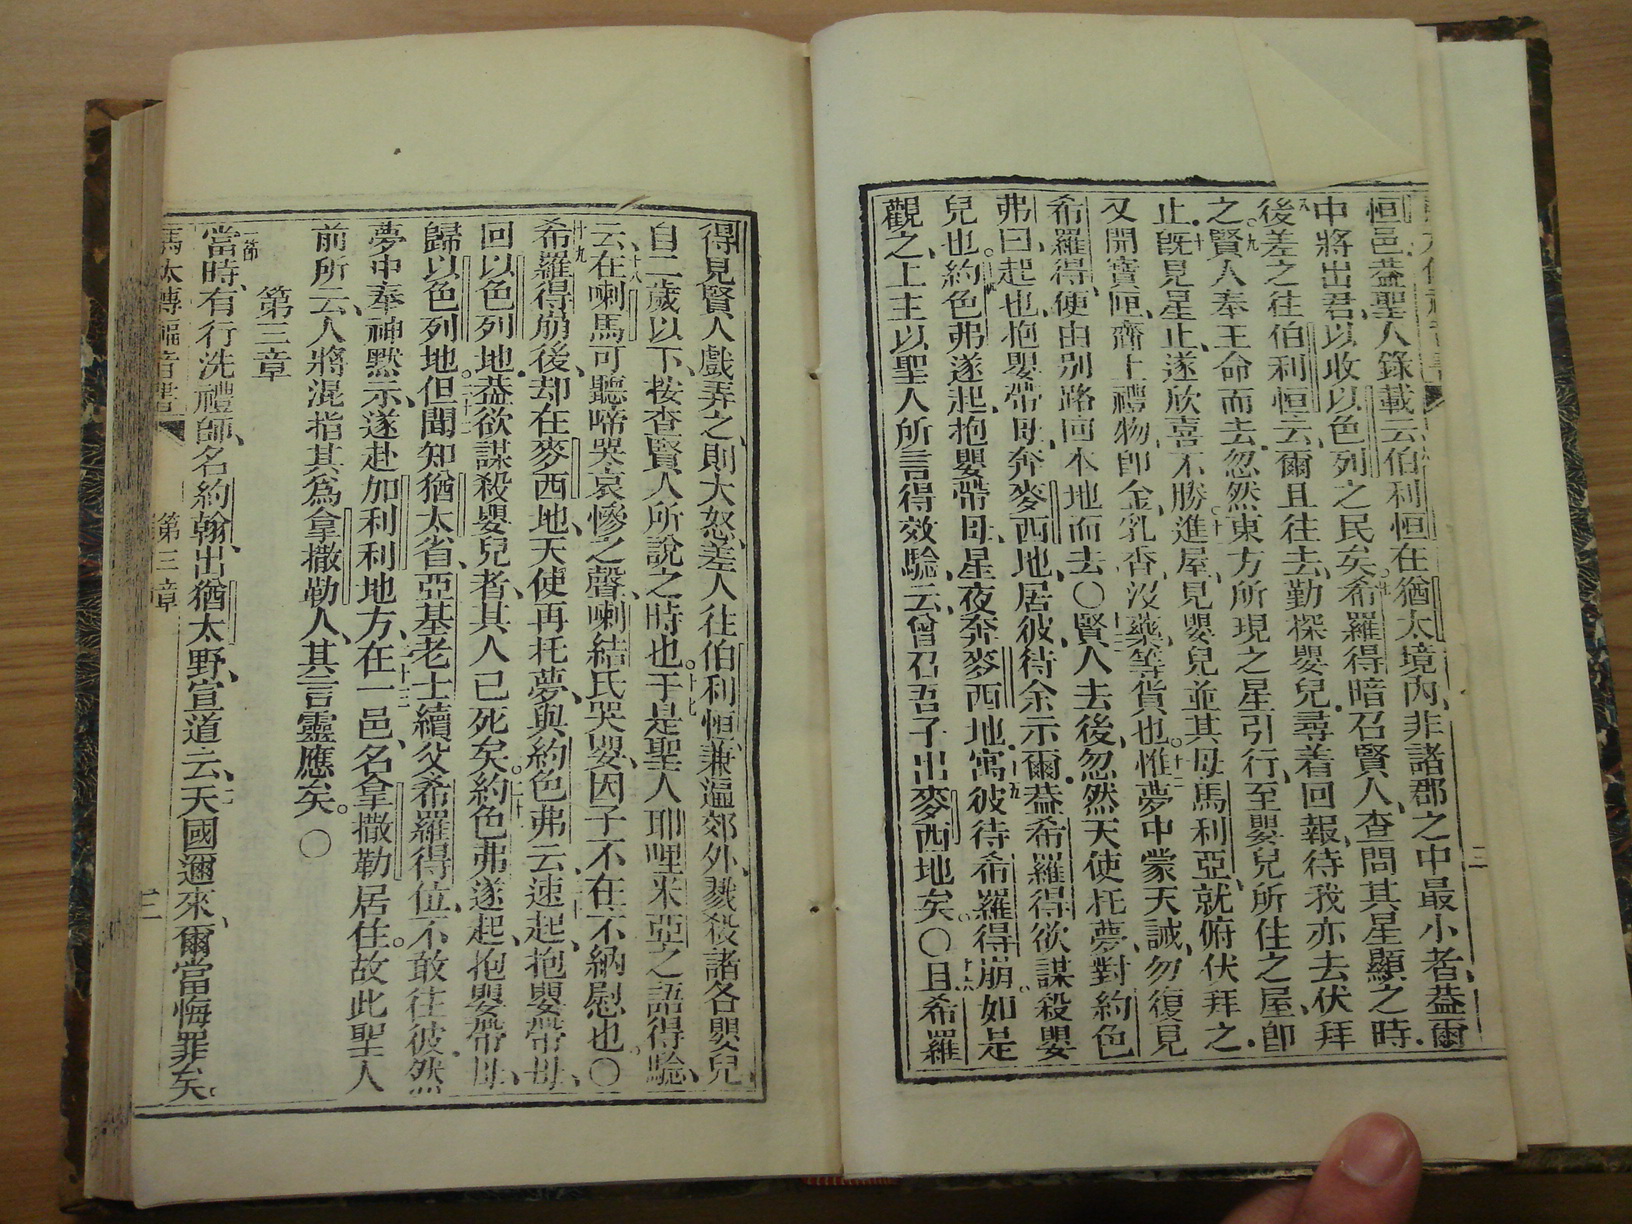 恒邑、蓋聖人錄載云、伯利恒在猶太境內、非諸郡之中最小者、蓋爾
中將出君、以收以色列之民矣。七希羅得暗召賢人、查問其星顯之時、
八後差之往伯利恒云、爾且往去、勤探嬰兒、尋着回報、待我亦去伏拜
之。九賢人奉王命而去、忽然東方所現之星引行、至嬰兒所住之屋、即
止。十既見星止、遂欣喜不勝。十一進屋、見嬰兒並其母馬利亞、就俯伏拜之、
又開寶匣、齎上禮物、即金、乳香、沒藥等貨也。十二惟夢中蒙天誡、勿復見
希羅得、便由別路回本地而去〇十三賢人去後、忽然天使托夢、對約色
弗曰、起也、抱嬰帶母、奔麥西地、居彼、待余示爾、蓋希羅得欲謀殺嬰
兒也。十四約色弗遂起、抱嬰帶母、星夜奔麥西地、十五寓彼待希羅得崩。如是
觀之、上主以聖人所言得效驗、云、曾召吾子出麥西地矣。〇十六且希羅
得見賢人戲弄之、則大怒、差人往伯利恒、兼逼郊外、戮殺諸各嬰兒、
自二歲以下、按查賢人所說之時也。十七于是聖人耶哩米亞之語得驗、
云、十八在喇馬可聽啼哭哀慘之聲、喇結氏哭嬰、因子不在、不納慰也。〇
十九希羅得崩後、却在麥西地、天使再托夢、與約色弗云、二十速起、抱嬰帶母、
回以色列地、蓋欲謀殺嬰兒者、其人已死矣。二十一約色弗遂起、抱嬰帶母、
歸以色列地。二十二但聞知猶太省、亞基老士續父希羅得位、不敢往彼、然
夢中奉神默示、遂赴加利利地方、二十三在一邑、名拿撒勒居住。故此聖人
前所云、人將混指其爲拿撒勒人、其言靈應矣。〇
第三章
一節當時、有行洗禮師、名約翰、出猶太野、宣道云、二天國邇來、爾當悔罪矣。
馬太傳福音書 第三章 三